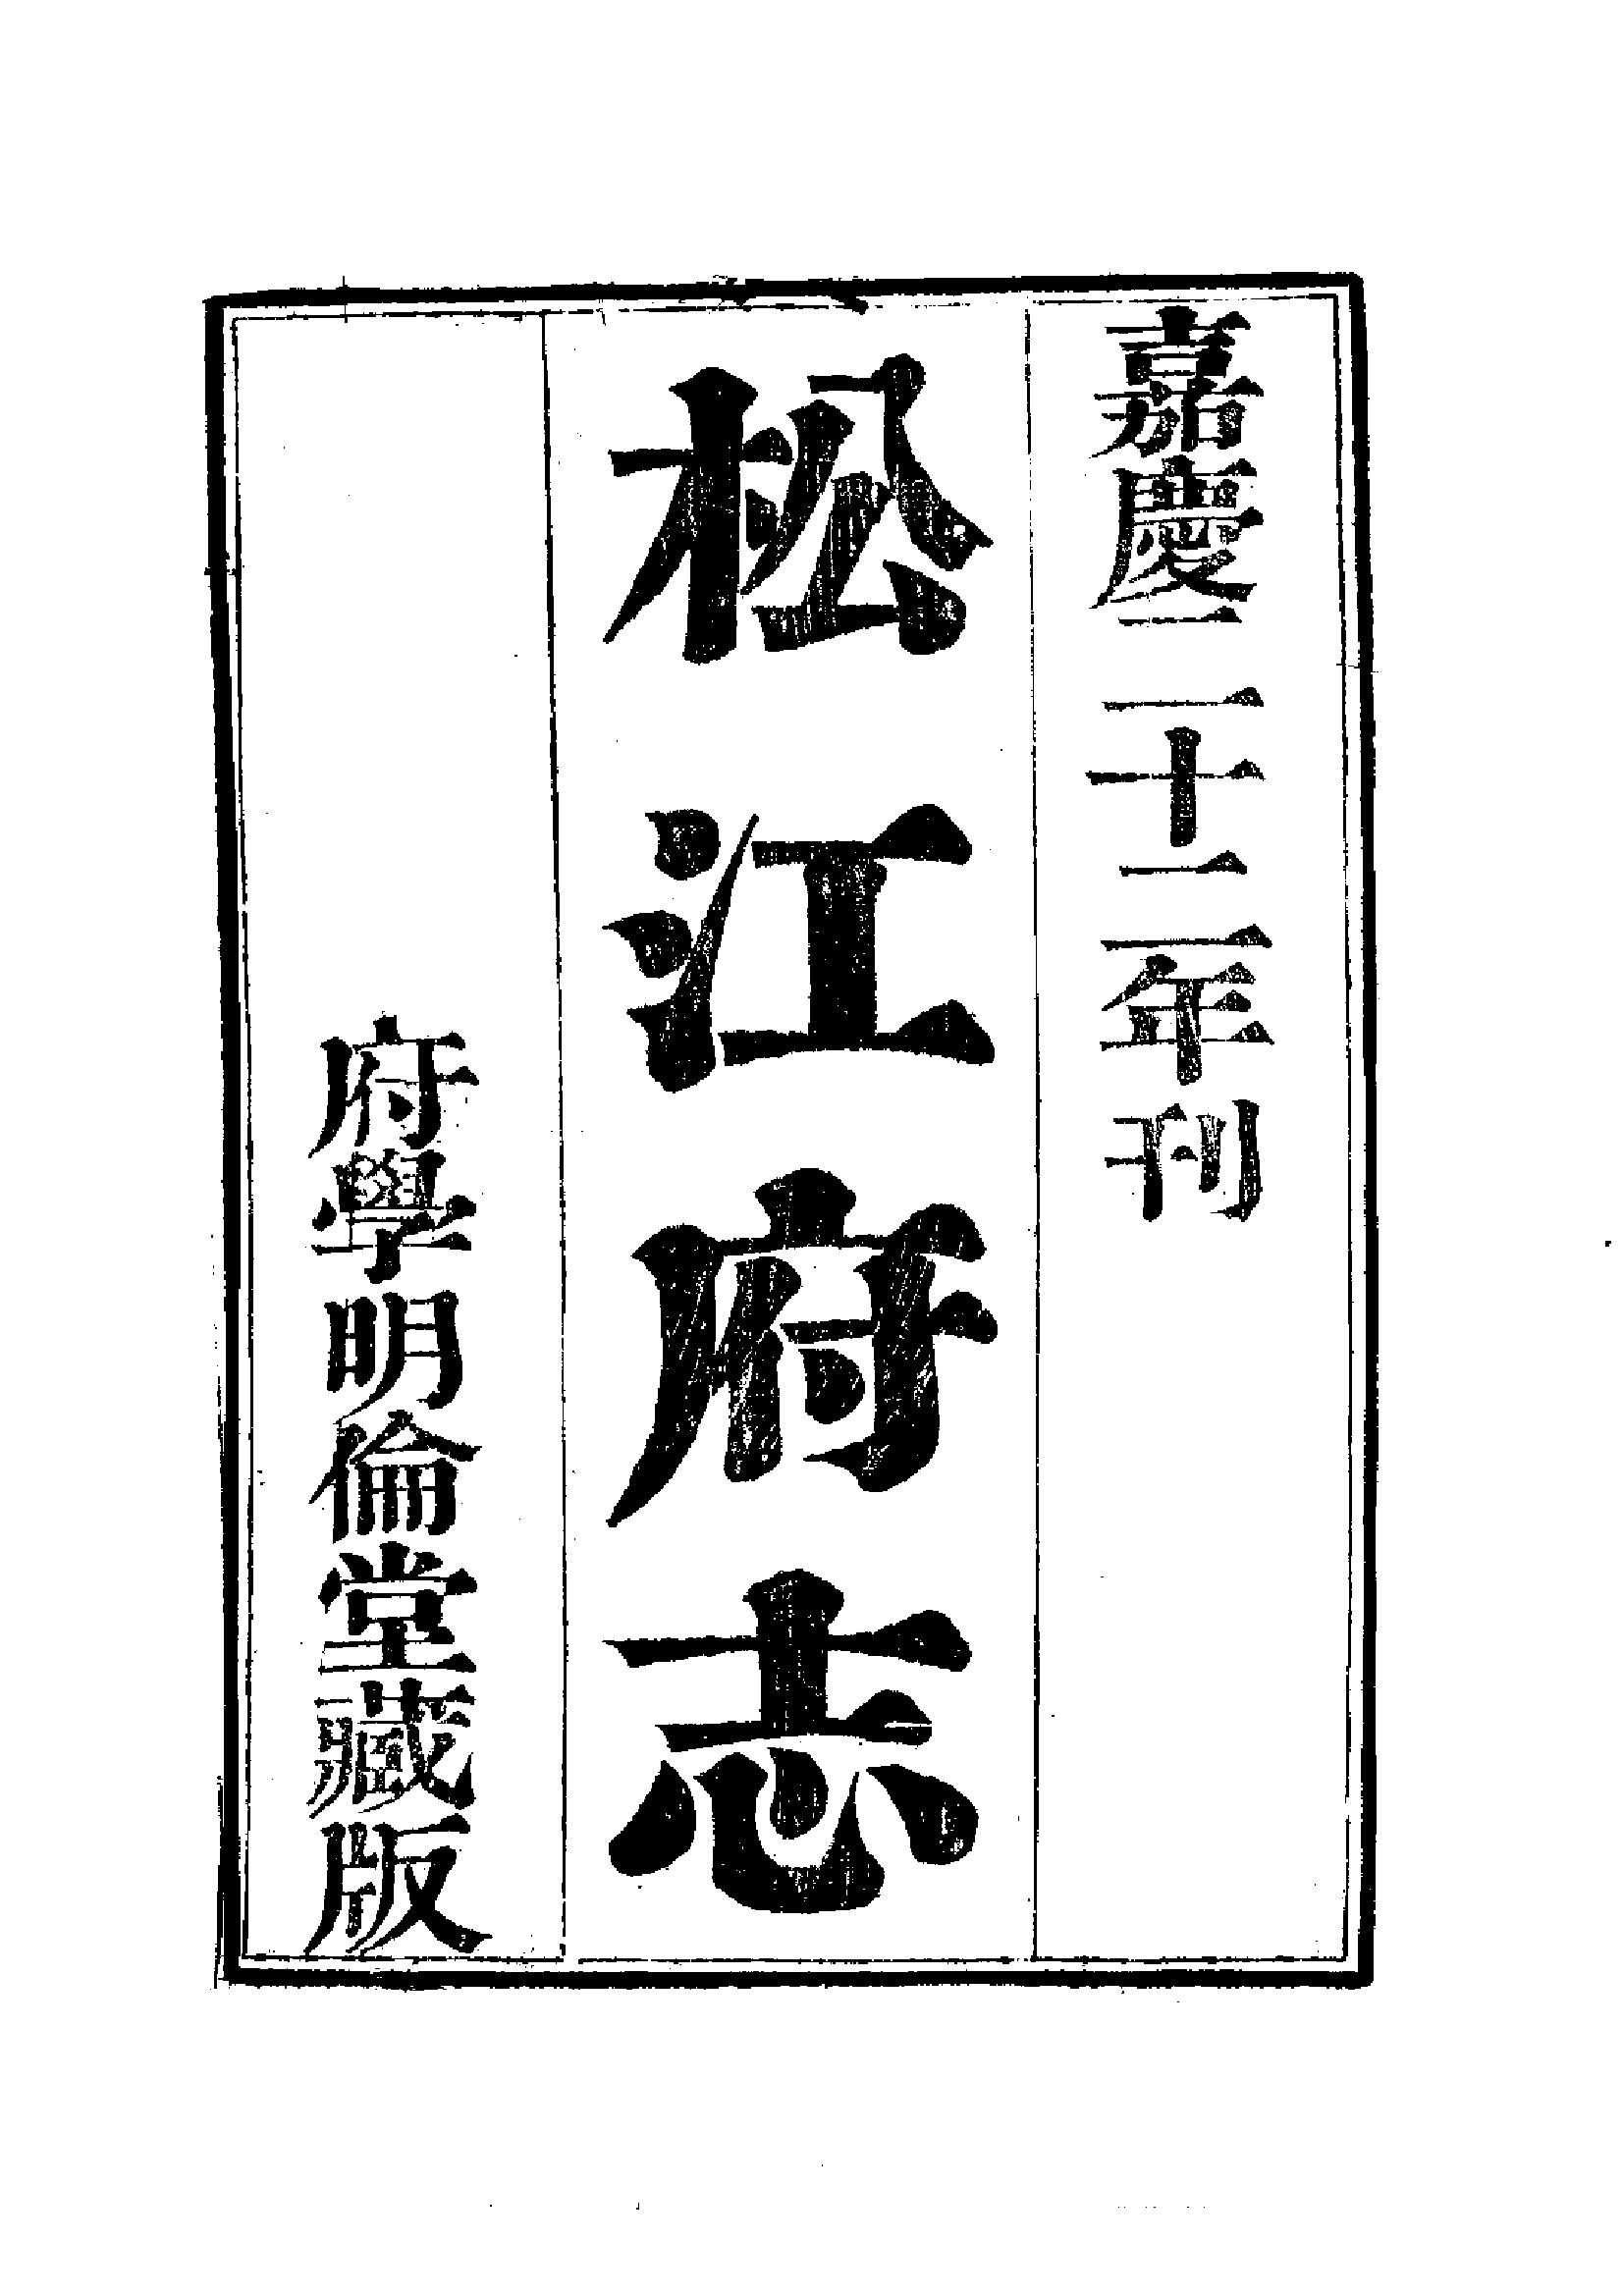 嘉慶二十二年刊
松江府志
府學明倫堂藏版